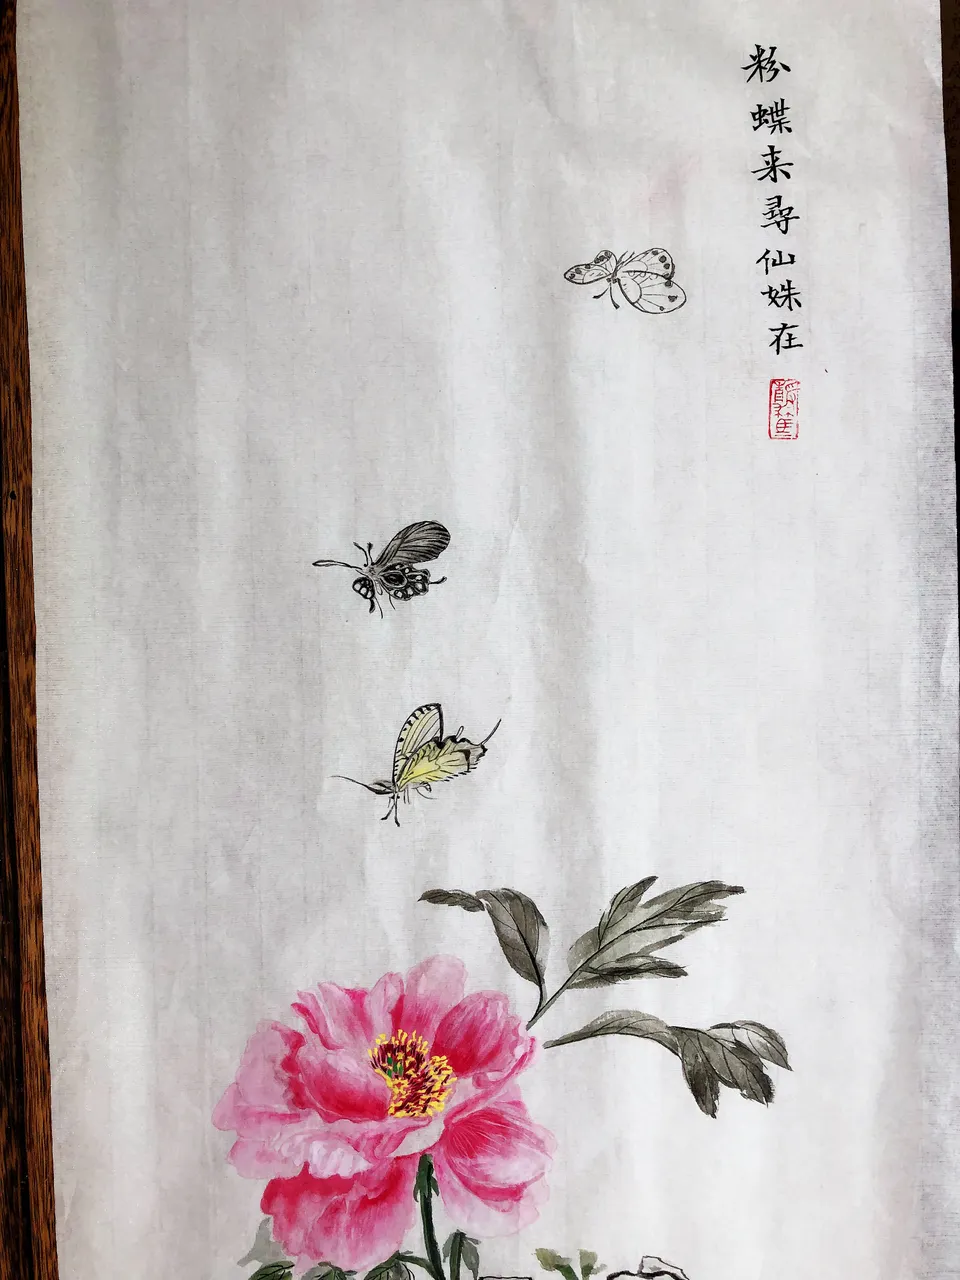 粉蝶来尋仙姝在